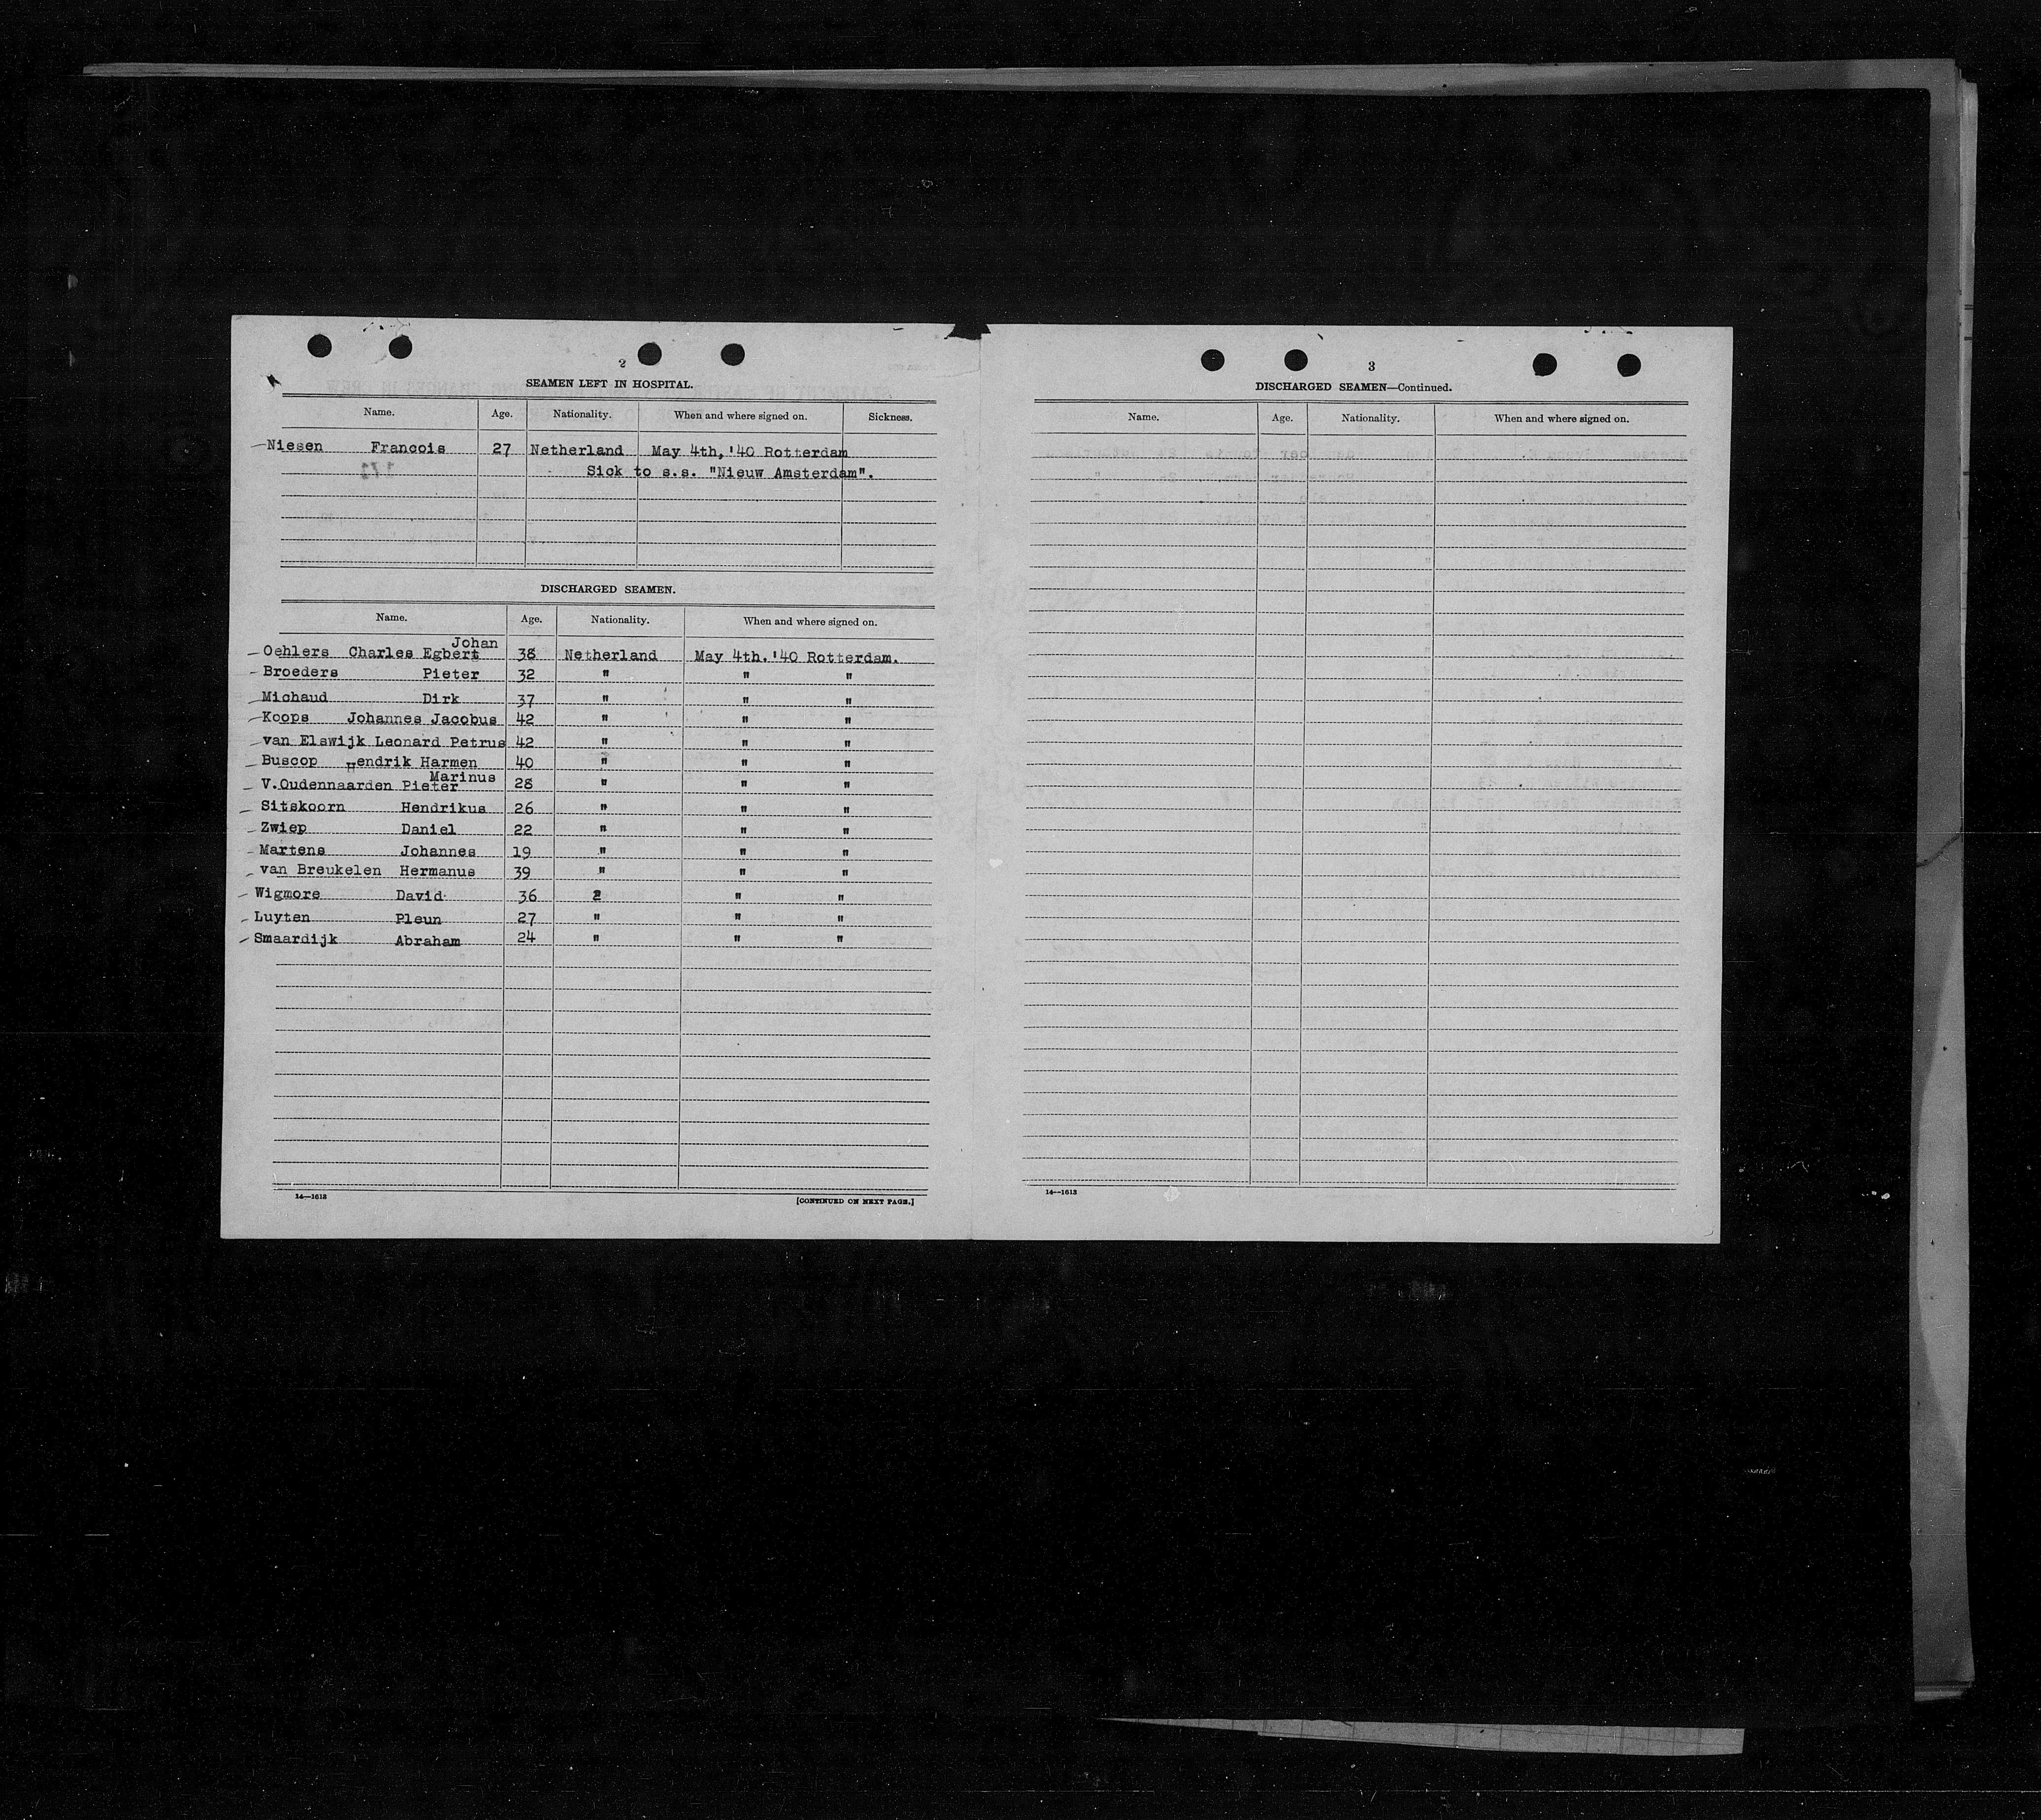 2
SEAMEN LEFT IN HOSPITAL.
Name. Age. Nationality. When and where signed on. Sickness.
Niesen Francois 27 Netherland May 4th, '40 Rotterdam
Sick to s.s. "Nieuw Amsterdam".
DISCHARGED SEAMEN.
Name. Age. Nationality. When and where signed on.
Johan
Oehlers Charles Egbert 38 Netherland May 4th. '40 Rotterdam.
Broeders Pieter 32 " " "
Michaud Dirk 37 " " "
Koops Johannes Jacobus 42 " " "
van Elswijk Leonard Petrus 42 " " "
Buscop Hendrik Harmen 40 " " "
Marinus
V.Oudennaarden Pieter 28 " " "
Sitskoorn Hendrikus 26 " " "
Zwiep Daniel 22 " " "
Martens Johannes 19 " " "
van Breukelen Hermanus 39 " " "
Wigmore David 36 2 " "
Luyten Pleun 27 " " "
Smaardijk Abraham 24 " " "
14—1613
[CONTINUED ON NEXT PAGE.]
3
DISCHARGED SEAMEN—Continued.
Name. Age. Nationality. When and where signed on.
14—1613